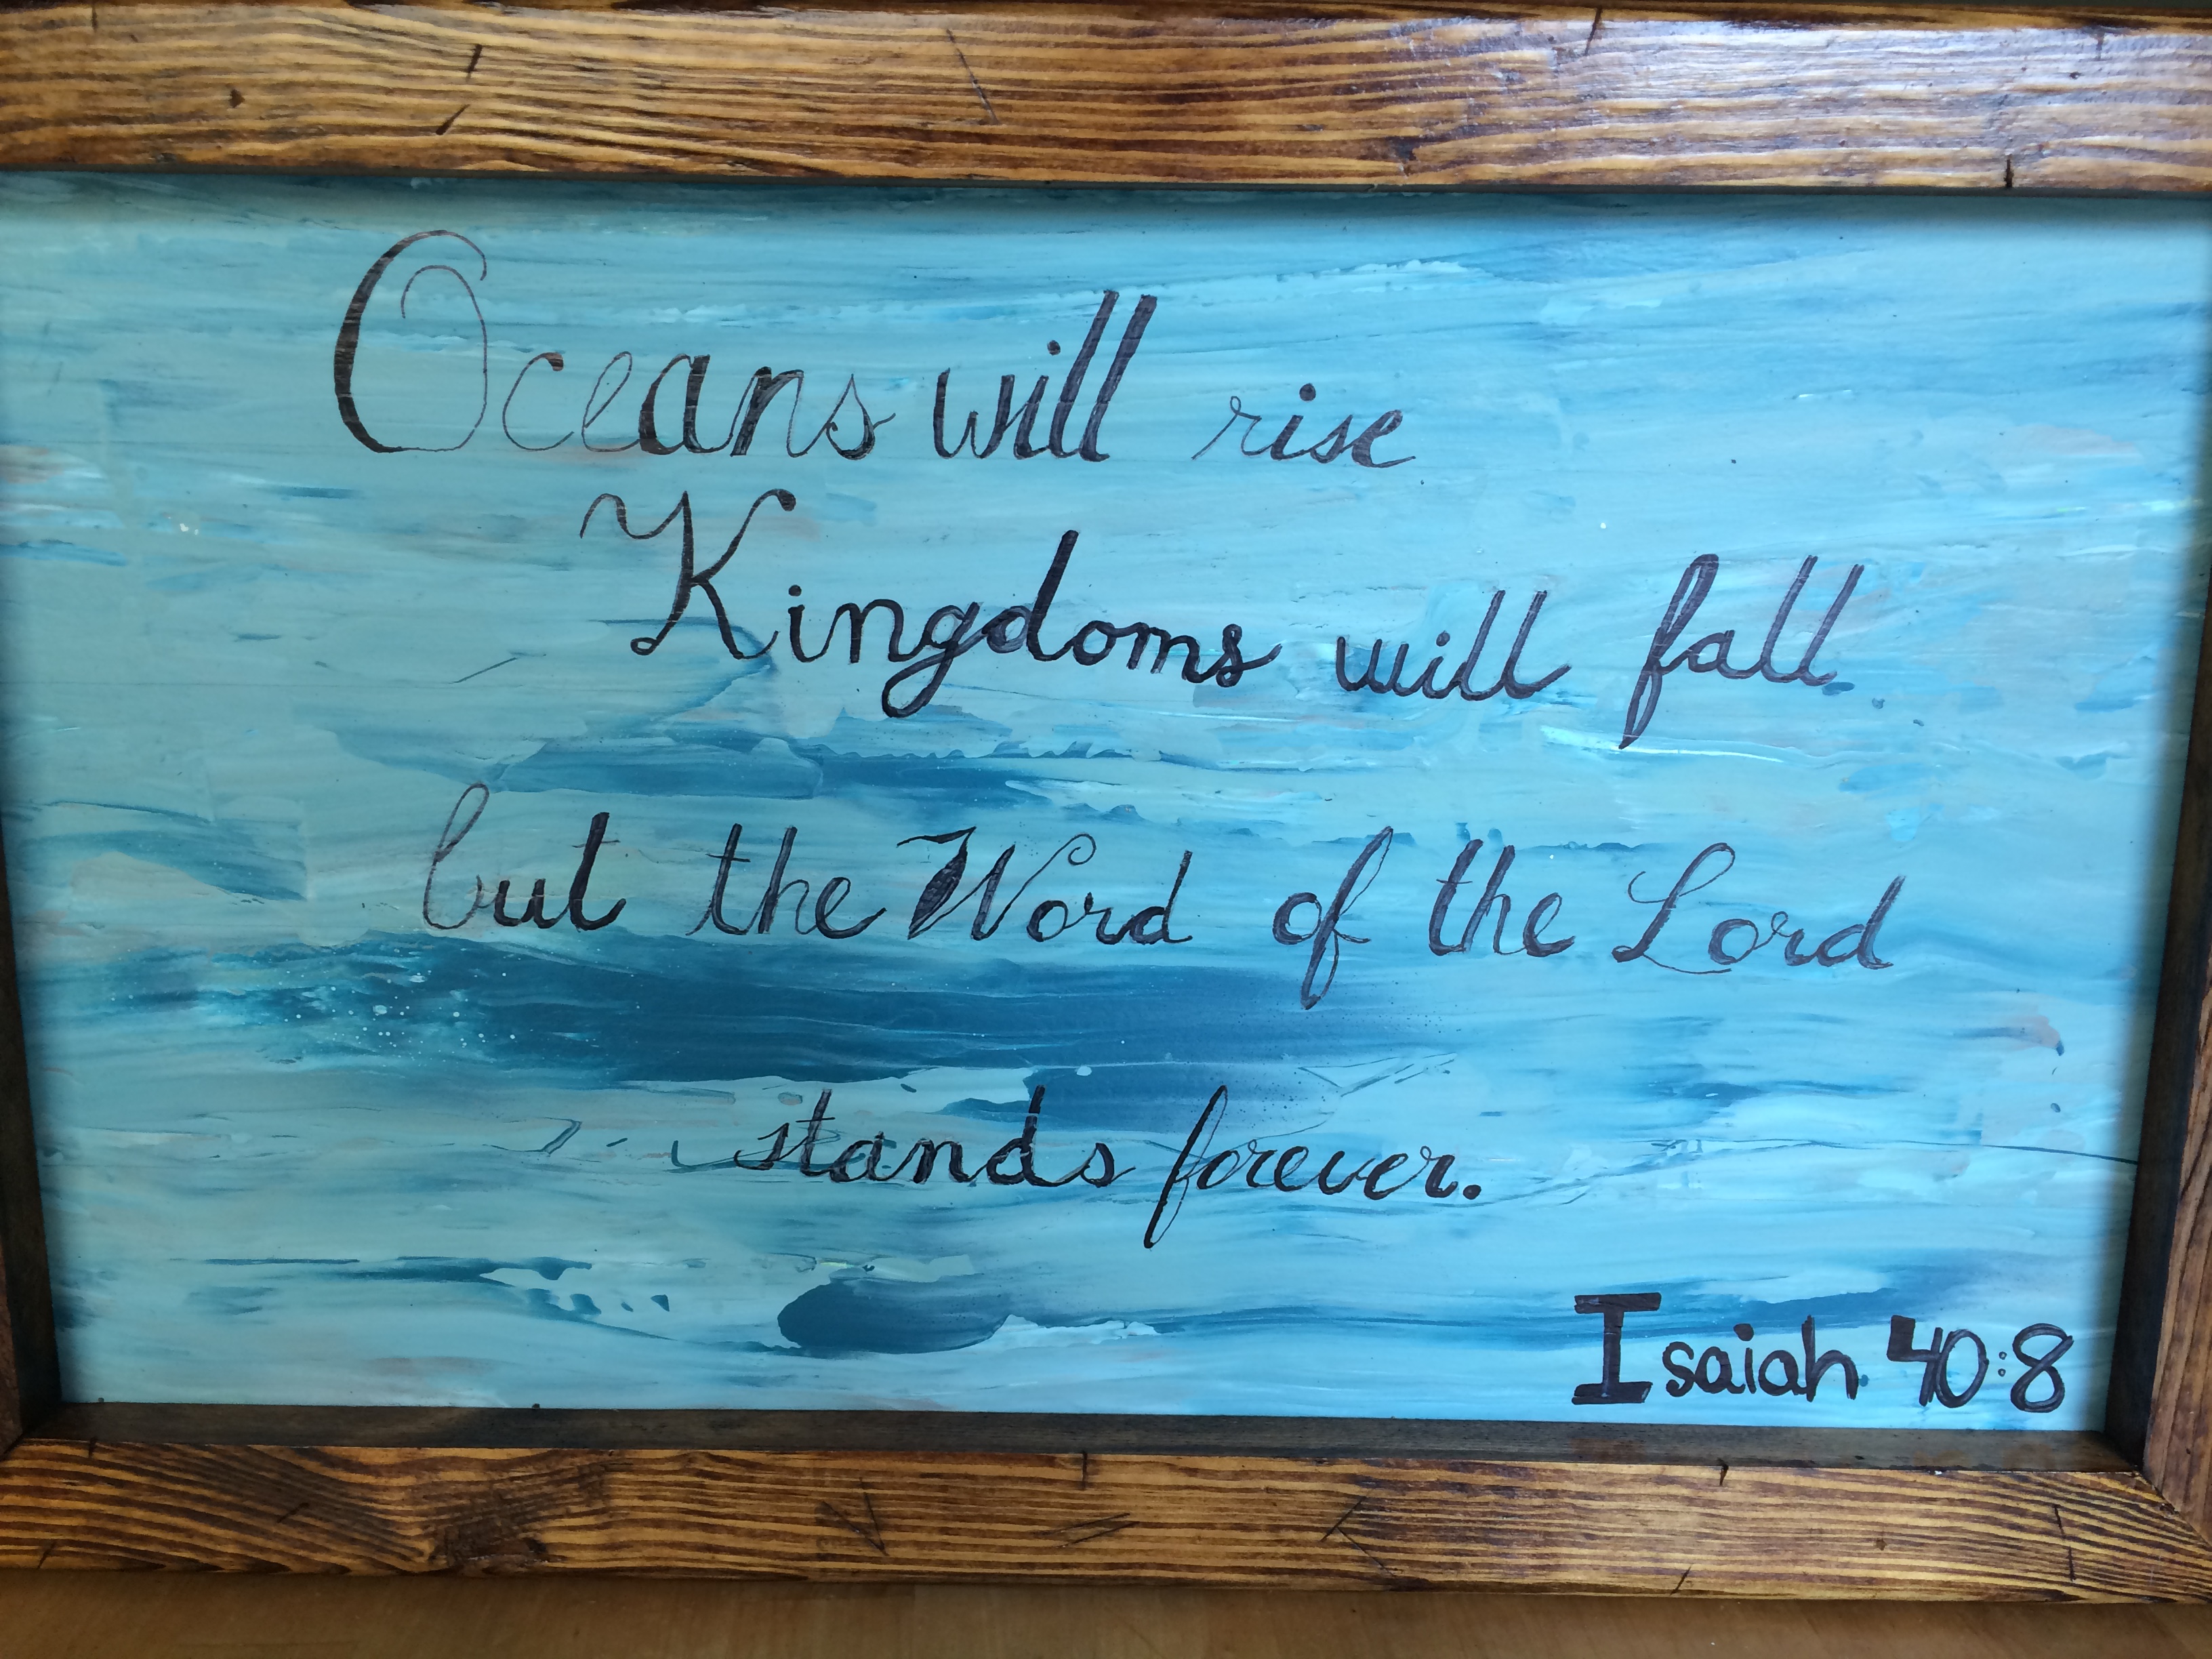 Oceans will rise
Kingdoms will fall
but the Word of the Lord
stands forever.
Isaiah 40:8